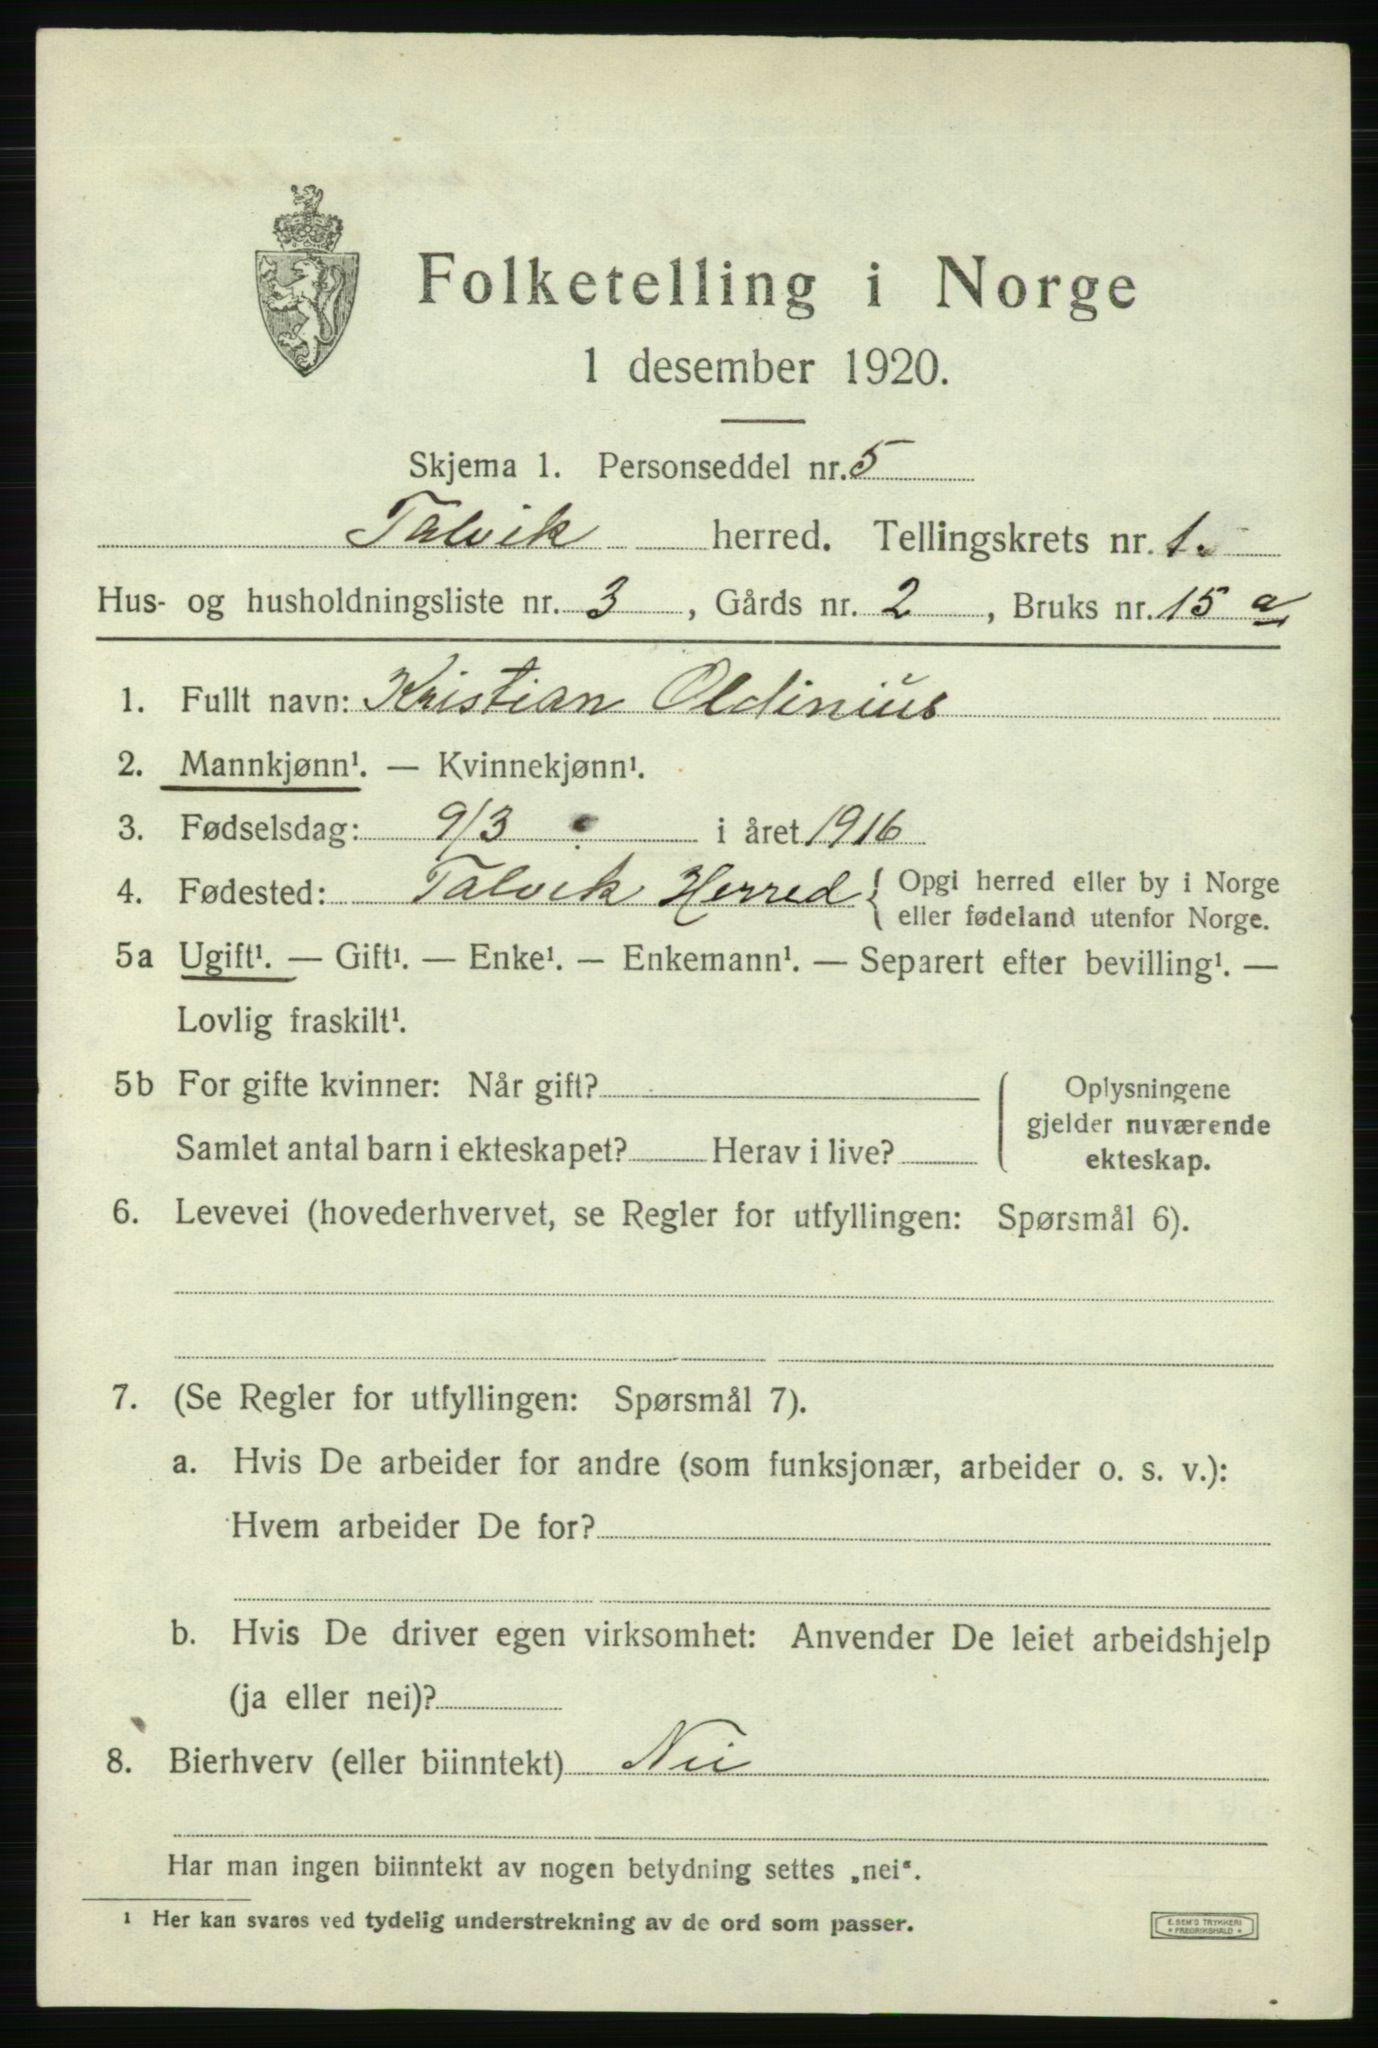 Folketelling i Norge
1 desember 1920.
Skjema 1. Personseddel nr. 5
Talvik herred. Tellingskrets nr. 1.
Hus- og husholdningsliste nr. 3, Gårds nr. 2, Bruks nr. 15 a
1. Fullt navn: Kristian Oldinius
2. Mannkjønn¹. — Kvinnekjønn¹.
3. Fødselsdag: 9/3 i året 1916
4. Fødested: Talvik Herred { Opgi herred eller by i Norge
eller fødeland utenfor Norge.
5a Ugift¹. — Gift¹. — Enke¹. — Enkemann¹. — Separert efter bevilling¹. —
Lovlig fraskilt¹.
5b For gifte kvinner: Når gift?
Samlet antal barn i ekteskapet? Herav i live?
Oplysningene
gjelder nuværende
ekteskap.
6. Levevei (hovederhvervet, se Regler for utfyllingen: Spørsmål 6).
7. (Se Regler for utfyllingen: Spørsmål 7).
a. Hvis De arbeider for andre (som funksjonær, arbeider o. s. v.):
Hvem arbeider De for?
b. Hvis De driver egen virksomhet: Anvender De leiet arbeidshjelp
(ja eller nei)?
8. Bierhverv (eller biinntekt) Nei
Har man ingen biinntekt av nogen betydning settes „nei“.
¹ Her kan svares ved tydelig understrekning av de ord som passer.
E. SEM'S TRYKKERI
* FREDRIKSHALD *